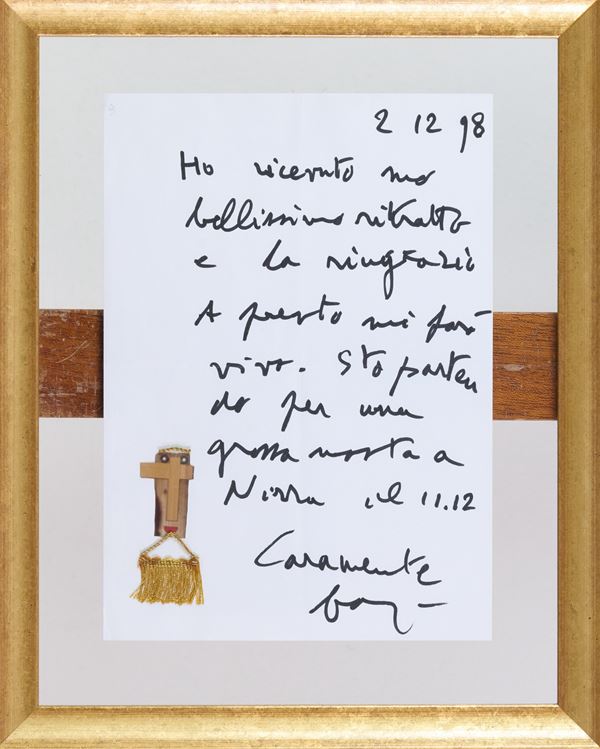 2 12 98
Ho ricevuto suo
bellissimo ritratto
e La ringrazio
A presto mi farò
vivo. Sto parten
do per una
grossa mostra a
Nizza il 11.12
Caramente
baj